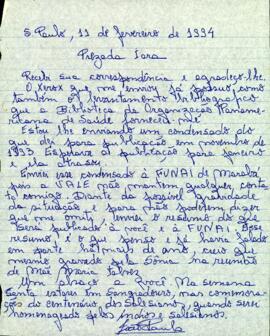 S. Paulo, 11 de fevereiro de 1994
Prezada Iara
Recebi sua correspondência e agradeço-lhe.
O Xerox que me enviou já possuo, como
também o levantamento bibliográfico
que a Biblioteca da Organização Panamericana
de Saúde forneceu-me.
Estou lhe enviando um condensado do
que dei para publicação em novembro de
1993. Esperava a publicação para janeiro
e ela atrasou.
Enviei esse condensado à FUNAI de Marabá
pois a VALE não mantém qualquer conta-
to comigo. Diante da possível gravidade
da situação e para não poderem dizer
que me omiti, enviei o resumo do que
será publicado à você e à FUNAI. Esse
resumo, é o que penso
em parte há mais de ano, creio que
mesmo gravado pela Sônia na reunião de
Mãe Maria talvez.
Um abraço a você. Na semana
Santa estarei em Sangradouro, nas comemora-
ções do centenário dos Salesianos, quando serei
homenageado pelos índios e salesianos.
João Paulo